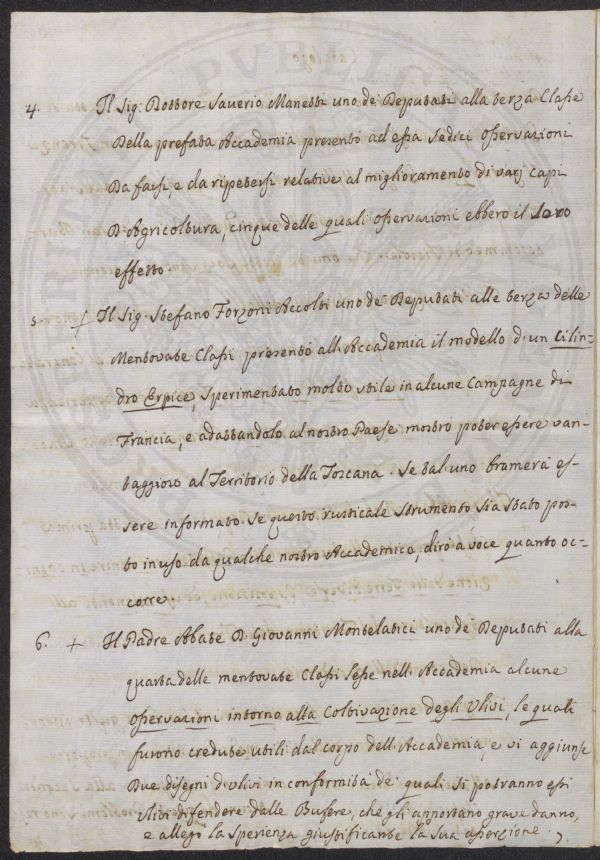 4. Il Sig: Dottore Saverio Manetti uno de' Deputati alla terza Classe
della prefata Accademia presentò ad essa Sedici osservazioni
da farsi, e da ripetersi relative al miglioramento di varj Capi
d'Agricoltura, cinque delle quali osservazioni ebbero il loro
effetto.
5. + Il Sig. Stefano Forzoni Accolti uno de' Deputati alle terza delle
Mentovate Classi presentò all'Accademia il modello d'un Cilin-
dro Erpice, Sperimentato molto utile in alcune Campagne di
Francia, e adattandolo al nostro Paese mostrò poter essere van-
taggioso al Territorio della Toscana. Se tal'uno bramerà es-
sere informato se questo rusticale strumento sia stato pos-
to in uso da qualche nostro Accademico, dirò a voce quanto oc-
corre.
6. + Il Padre Abate D. Giovanni Montelatici uno de' Deputati alla
quarta delle mentovate Classi lesse nell'Accademia alcune
osservazioni intorno alla Coltivazione degli Ulivi, le quali
furono credute utili dal corpo dell'Accademia, e vi aggiunse
due disegni d'ulivi in conformità de' quali si potranno essi
ulivi difendere dalle Bufere, che gli apportano grave danno,
e allegò la sperienza giustificante la sua asserzione.